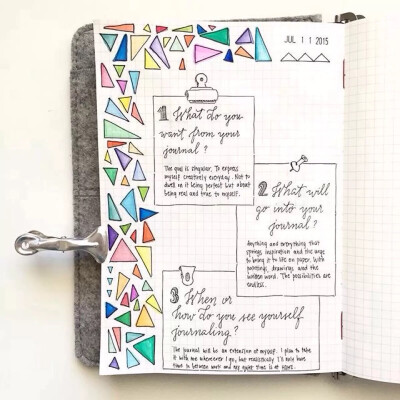 JUL 11 2015
1 What do you
want from your
journal?
The goal is singular. To express
myself creatively everyday. Not to
dwell on it being perfect but about
being real and true to myself.
2 What will
go into your
journal?
Anything and everything that
springs inspiration and the ways
to bring it to life on paper. With
paintings, drawings, and the
written word. The possibilities are
endless.
3 When or
how do you see yourself
journaling?
The journal will be an extension of myself. I plan to take
it with me wherever I go, but realistically I'll only have
time in between work and my quiet time is at home.